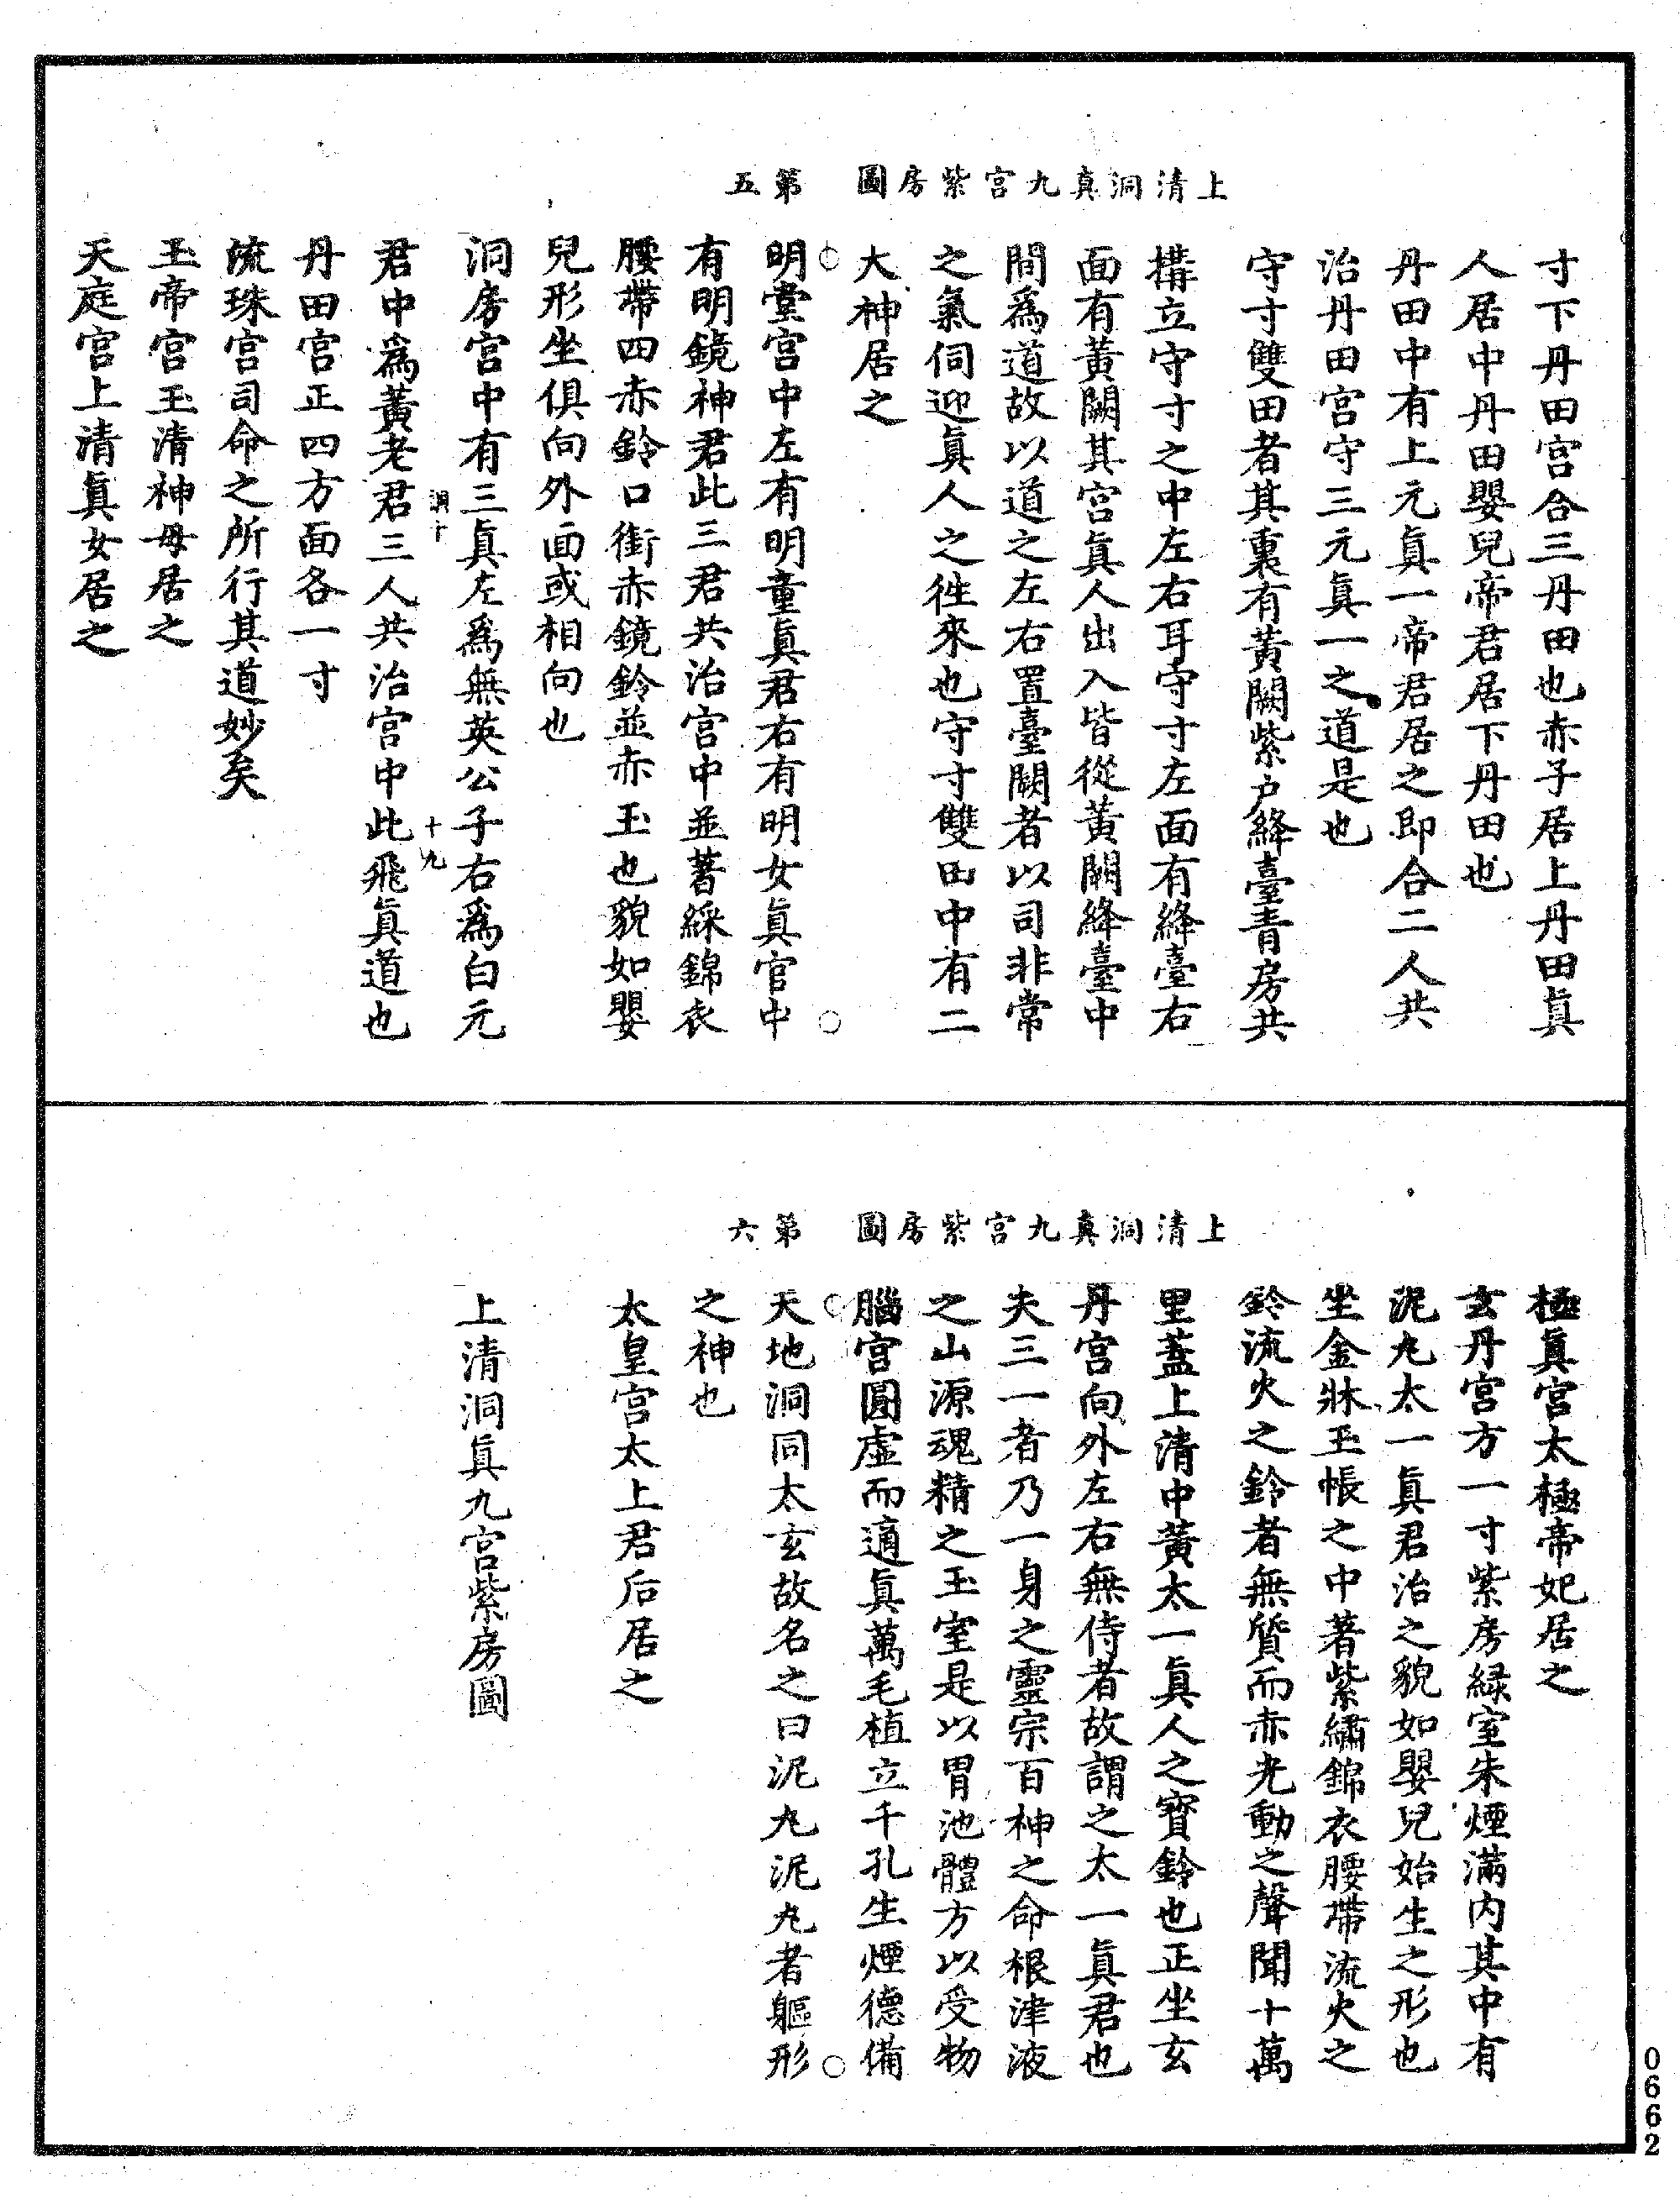 上清洞真九宮紫房圖　第五
寸下丹田宮合三丹田也赤子居上丹田真
人居中丹田嬰兒帝君居下丹田也
丹田中有上元真一帝君居之即合二人共
治丹田宮守三元真一之道是也
守寸雙田者其裏有黃闕紫户絳臺青房共
構立守寸之中左右耳守寸左面有絳臺右
面有黃闕其宮真人出入皆從黃闕絳臺中
間爲道故以道之左右置臺闕者以司非常
之氣伺迎真人之徃來也守寸雙田中有二
大神居之
明堂宮中左有明童真君右有明女真官中
有明鏡神君此三君共治宮中並著綵錦衣
腰帶四赤鈴口銜赤鏡鈴並赤玉也貌如嬰
兒形坐俱向外面或相向也
洞房宮中有三真左爲無英公子右爲白元
洞十　十九
君中爲黃老君三人共治宮中此飛真道也
丹田宮正四方面各一寸
流珠宮司命之所行其道妙矣
玉帝宮玉清神母居之
天庭宮上清真女居之
上清洞真九宮紫房圖　第六
極真宮太極帝妃居之
玄丹宮方一寸紫房緑室朱煙滿内其中有
泥丸太一真君治之貌如嬰兒始生之形也
坐金牀玉帳之中著紫繡錦衣腰帶流火之
鈴流火之鈴者無質而赤光動之聲聞十萬
里蓋上清中黃太一真人之寶鈴也正坐玄
丹宮向外左右無侍者故謂之太一真君也
夫三一者乃一身之靈宗百神之命根津液
之山源魂精之玉室是以胃池體方以受物
腦宮圓虛而適真萬毛植立千孔生煙德備
天地洞同太玄故名之曰泥丸泥丸者軀形
之神也
太皇宮太上君后居之
上清洞真九宮紫房圖
0662